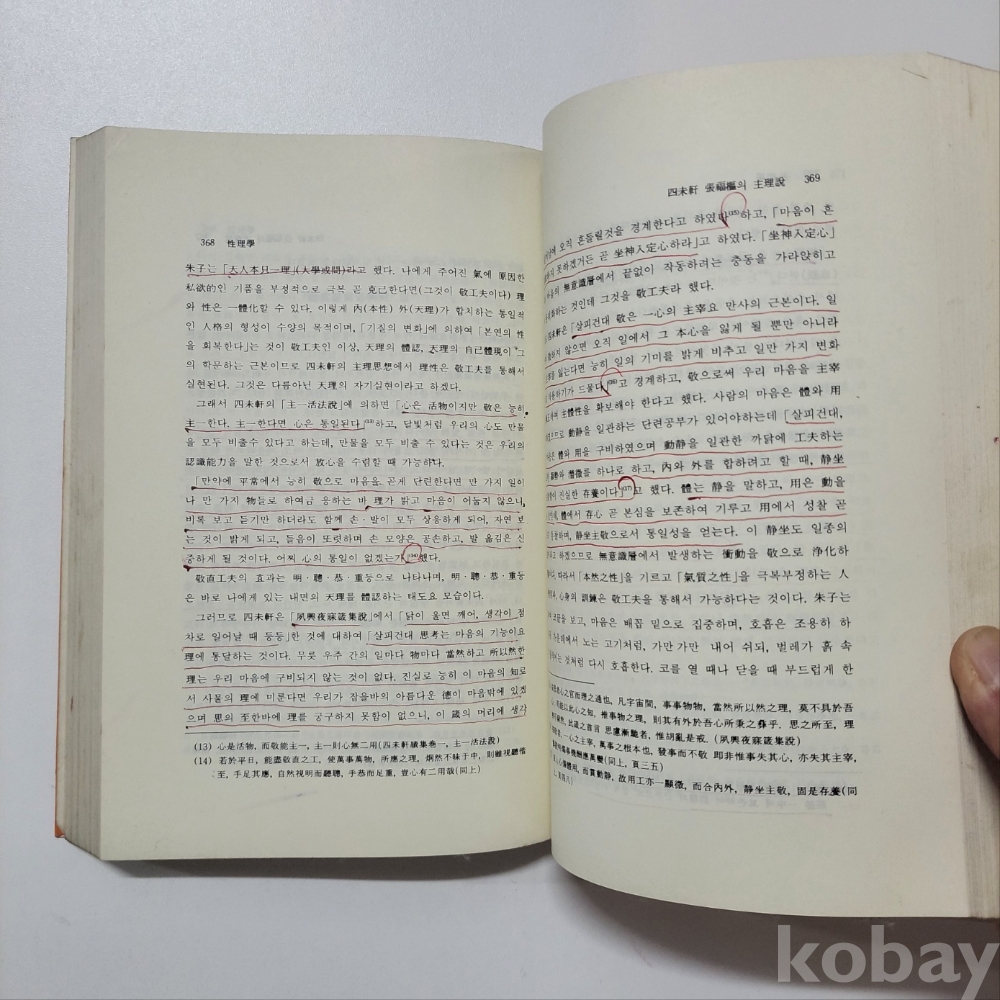 368 性理學
朱子는 「天人本只一理」(大學或問)라고 했다. 나에게 주어진 氣에 原因한
私欲的인 기품을 부정적으로 극복 곧 克己한다면(그것이 敬工夫이다) 理
와 性은 一體化할 수 있다. 이렇게 內(本性) 外(天理)가 합치하는 통일적
인 人格의 형성이 수양의 목적이며, 「기질의 변화」에 의하여 「본연의 性
을 회복한다」는 것이 敬工夫인 이상, 天理의 體認, 天理의 自己體現이 그
의 학문하는 근본이므로 四未軒의 主理思想에서 理性은 敬工夫를 통해서
실현된다. 그것은 다름아닌 天理의 자기실현이라고 하겠다.
그래서 四未軒의 「主一活法說」에 의하면 「心은 活物이지만 敬은 능히
主一한다. 主一한다면 心은 통일된다」고 하고, 달빛처럼 우리의 心도 만물
을 모두 비출수 있다고 하는데, 만물을 모두 비출 수 있다는 것은 우리의
認識能力을 말한 것으로서 放心을 수렴할 때 가능하다.
「만약에 平常에서 능히 敬으로 마음을 곧게 단련한다면 만 가지 일이
나 만 가지 物들로 하여금 응하는 바 理가 밝고 마음이 어둡지 않으니,
비록 보고 듣기만 하더라도 함께 손·발이 모두 상응하게 되어, 자연 보
는 것이 밝게 되고, 들음이 또렷하며 손 모양은 공손하고, 발 옮김은 신
중하게 될 것이다. 어찌 心의 통일이 없겠는가」(14)했다.
敬直工夫의 효과는 明·聰·恭·重등으로 나타나며, 明·聰·恭·重등
은 바로 나에게 있는 내면의 天理를 體認하는 태도요 모습이다.
그러므로 四未軒은 「夙興夜寐箴集說」에서 「닭이 울면 깨어, 생각이 점
차로 일어날 때 등등」한 것에 대하여 「살피건대 思考는 마음의 기능이요
理에 통달하는 것이다. 무릇 우주 간의 일마다 物마다 當然하고 所以然한
理는 우리 마음에 구비되지 않는 것이 없다. 진실로 능히 이 마음의 知로
서 사물의 理에 미룬다면 우리가 잡을바의 아름다운 德이 마음밖에 있겠
으며 思의 至한바에 理를 궁구하지 못함이 없으니, 이 箴의 머리에 생각
(13) 心是活物, 而敬能主一, 主一則心無二用(四未軒續集卷一, 主一活法說)
(14) 若於平日, 能盡敬直之工, 使萬事萬物, 所應之理, 炯然不昧于中, 則雖視聽偕
至, 手足其應, 自然視明而聽聰, 手恭而足重, 豈心有二用哉(同上)
四未軒 張福樞의 主理說 369
에 오직 흔들릴것을 경계한다고 하였다」(15)하고, 「마음이 흔
못하겠거든 곧 坐神入定心하라」고 하였다. 「坐神入定心」
無意識層에서 끝없이 작동하려는 충동을 가라앉히고
하는 것인데 그것을 敬工夫라 했다.
四未軒은 「살피건대 敬은 一心의 主宰요 만사의 근본이다. 일
하지 않으면 오직 일에서 그 本心을 잃게 될 뿐만 아니라
를 잃는다면 능히 일의 기미를 밝게 비추고 일만 가지 변화
하기가 드물다」(16)고 경계하고, 敬으로써 우리 마음을 主宰
主體性을 확보해야 한다고 했다. 사람의 마음은 體와 用
므로 動靜을 일관하는 단련공부가 있어야하는데 「살피건대,
은 體와 用을 구비하였으며 動靜을 일관한 까닭에 工夫하는
潛微를 하나로 하고, 內와 外를 합하려고 할 때, 靜坐
이 진실한 존養이다」(17)고 했다. 體는 靜을 말하고, 用은 動을
體에서 存心 곧 본심을 보존하여 기루고 用에서 성찰 곧
하며, 靜坐主敬으로서 통일성을 얻는다. 이 靜坐도 일종의
하겠으므로 無意識層에서 발생하는 衝動을 敬으로 淨化하
다. 따라서 「本然之性」을 기르고 「氣質之性」을 극복부정하는 人
心身의 訓練은 敬工夫을 통해서 가능하다는 것이다. 朱子는
을 보고, 마음은 배꼽 밑으로 집중하며, 호흡은 조용히 하
못에서 노는 고기처럼, 가만 가만 내어 쉬되, 벌레가 흙 속
는 것처럼 다시 호흡한다. 코를 열 때나 닫을 때 부드럽게 한
心之官而理之通也, 凡宇宙間, 事事物物, 當然所以然之理, 莫不具於吾
能以此心之知, 推事物之理, 則其有外於吾心所秉之彝乎. 思之所至, 理
比箴之首言 思慮漸馳者, 惟胡亂是戒. (夙興夜寐箴集說)
一心之主宰, 萬事之根本也, 發事而不敬 即非惟事失其心, 亦失其主宰,
應萬變(同上, 頁三五)
心備體用, 而貫動靜, 故用工亦一顯微, 而合內外, 靜坐主敬, 固是存養(同